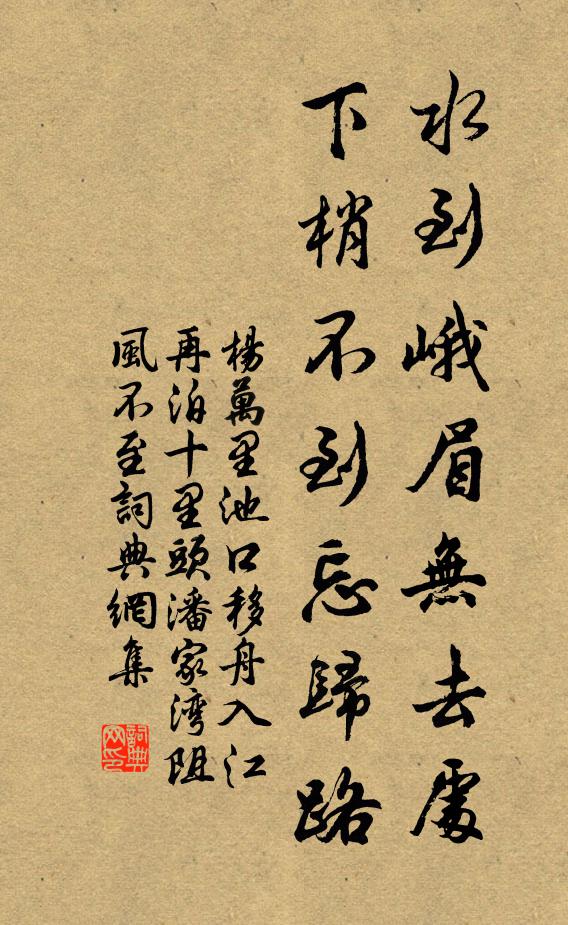 水到峨眉無去處
下梢不到忘歸路
楊萬里池口移舟入江
再泊十里頭潘家湾阻
風不至詞典網集
詞典网印